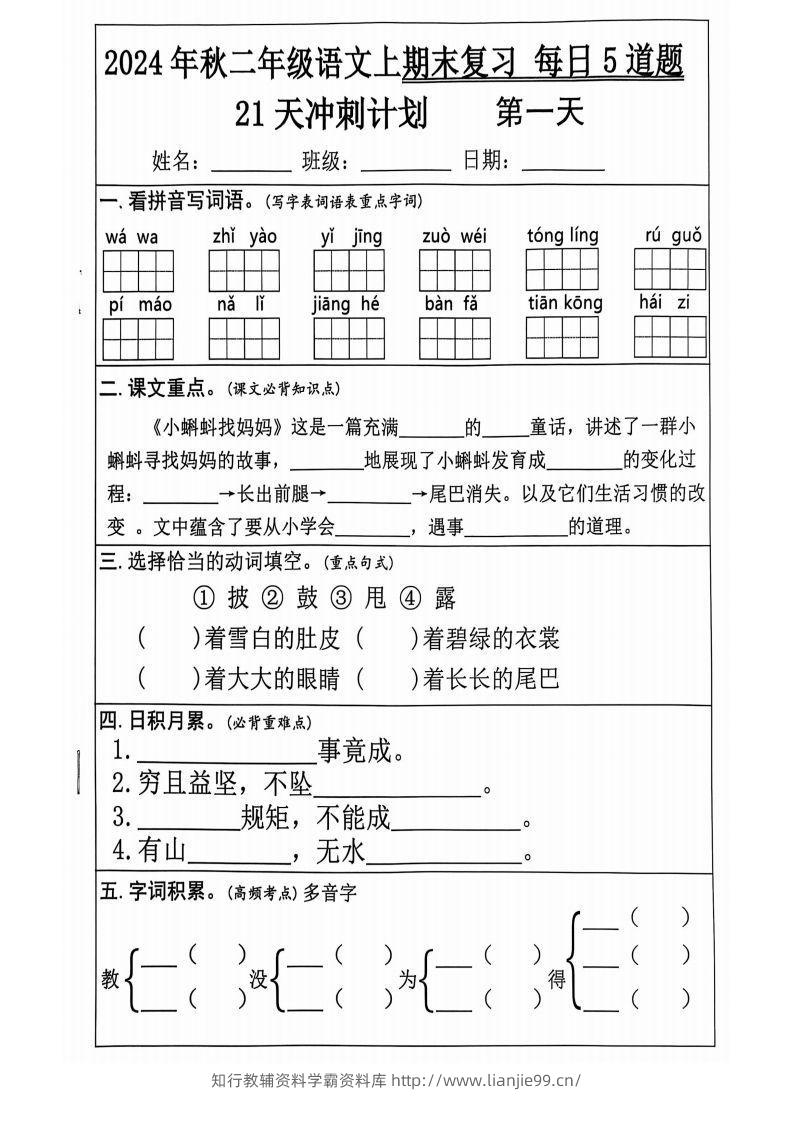 2024 年秋二年级语文上期末复习 每日 5 道题
21 天冲刺计划 第一天
姓名：________ 班级：_________ 日期：________
一. 看拼音写词语。(写字表词语表重点字词)
wá wa zhǐ yào yǐ jīng zuò wéi tóng líng rú guǒ
pí máo nǎ lǐ jiāng hé bàn fǎ tiān kōng hái zi
二. 课文重点。(课文必背知识点)
《小蝌蚪找妈妈》这是一篇充满_______的_____童话，讲述了一群小
蝌蚪寻找妈妈的故事，________地展现了小蝌蚪发育成________的变化过
程：________→长出前腿→_________→尾巴消失。以及它们生活习惯的改
变 。文中蕴含了要从小学会________，遇事___________的道理。
三. 选择恰当的动词填空。(重点句式)
① 披 ② 鼓 ③ 甩 ④ 露
( )着雪白的肚皮 ( )着碧绿的衣裳
( )着大大的眼睛 ( )着长长的尾巴
四. 日积月累。(必背重难点)
1.______________事竟成。
2.穷且益坚，不坠_____________。
3.________规矩，不能成__________。
4.有山________，无水____________。
五. 字词积累。(高频考点) 多音字
教 { ___ ( ) ___ ( ) 没 { ___ ( ) ___ ( ) 为 { ___ ( ) ___ ( ) 得 { ___ ( ) ___ ( ) ___ ( )
知行教辅资料学霸资料库 http://www.lianjie99.cn/